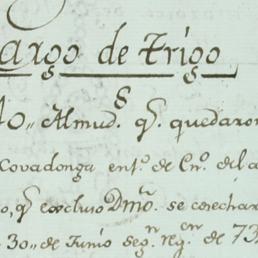 argo de Trigo
40,, Almud.s q.e quedaron
Covadonga en 1.o de En.o del a
o, q.e concluso D.mo se cosechar
30,, de Junio seg.n reg.n de 73